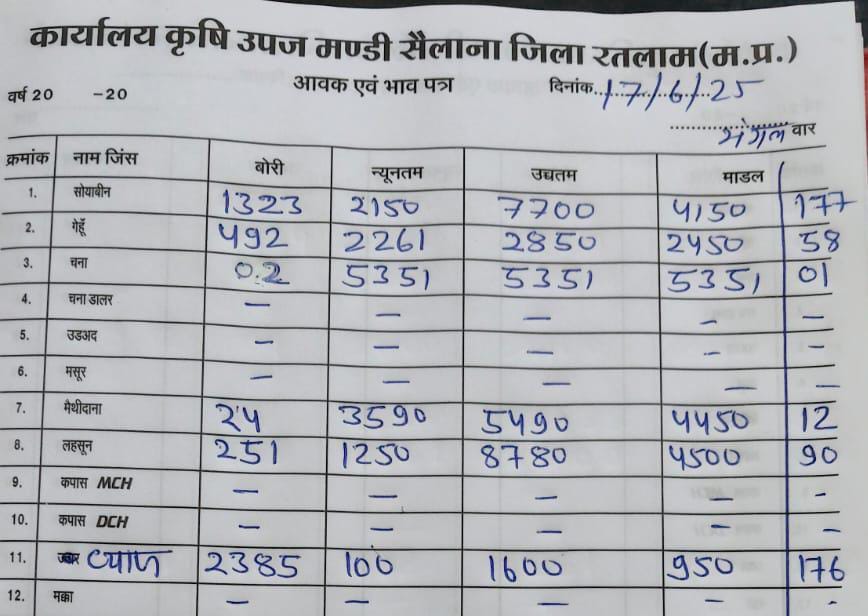 कार्यालय कृषि उपज मण्डी सैलाना जिला रतलाम(म.प्र.)
वर्ष 20 -20 आवक एवं भाव पत्र दिनांक 17/6/25
मंगल वार
क्रमांक नाम जिंस बोरी न्यूनतम उच्चतम माडल
1. सोयाबीन 1323 2150 7700 4150 177
2. गेहूँ 492 2261 2850 2450 58
3. चना 0.2 5351 5351 5351 01
4. चना डालर — — — — —
5. उडअद — — — — —
6. मसूर — — — — —
7. मैथीदाना 24 3590 5490 4450 12
8. लहसून 251 1250 8780 4500 90
9. कपास MCH — — — — -
10. कपास DCH — — — — -
11. प्याज 2385 100 1600 950 176
12. मक्का — — — — -